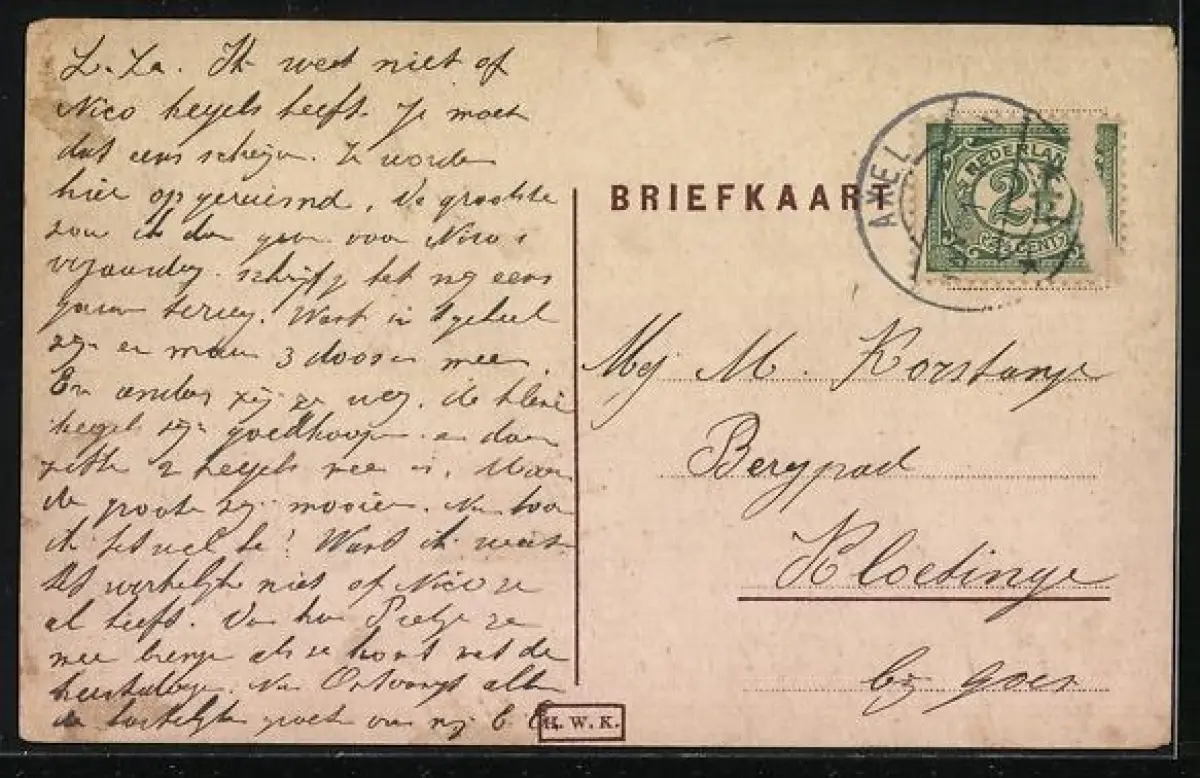 L. Za. Ik weet niet of
Nico kegels heeft. Je moet
dat eens schrijven. Ze worden
hier opgeruimd. De grootste
zou ik dan geven voor Nico's
verjaardag. Schrijf het nog eens
gauw terug. Want in 't geheel
zijn er maar 3 doozen meer.
En anders zijn ze weg. de kleine
kegels zijn goedkooper en daar
zitten 2 kegels meer in. Maar
de groote zijn mooier. Nu
ik het wel te! Want ik weet
het werkelijk niet of Nico ze
al heeft. Dan kan Pietje ze
mee als ze komt met de
Nu Ontvangt allen
de hartelijke groeten van mij
H. W. K.
BRIEFKAART
AXEL
NEDERLAND
2½
CENT
Mej M. Korstanje
Bergpad
Kloetinge
bij Goes